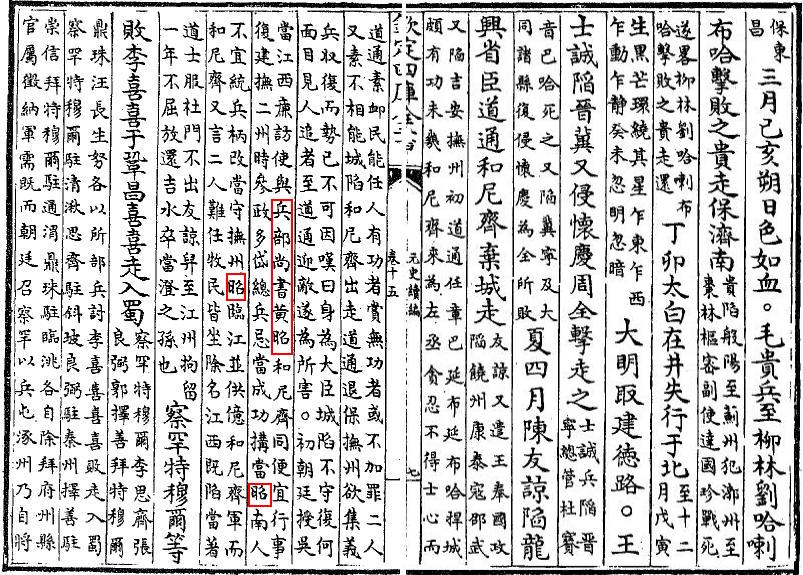 保東
昌
三月己亥朔日色如血。毛貴兵至柳林劉哈喇
布哈擊敗之貴走保濟南
貴陷般陽至薊州犯漷州至
棗林樞密副使達國珍戰死
遂畧柳林劉哈喇布
哈擊敗之貴走還
丁卯太白在井失行于北
至十二
月戊寅
生黑芒環繞其星乍東乍西
乍動乍靜癸未忽明忽暗
大明取建德路。王
士誠陷晉冀又侵懷慶周全擊走之
士誠兵陷晉
寧總管杜賽
音巴哈死之又陷冀寧及大
同諸縣復侵懷慶為全所敗
夏四月陳友諒陷龍
興省臣道通和尼齊棄城走
友諒又遣王奉國攻
陷饒州康泰寇邵武
又陷吉安撫州初道通任章巴延布延布哈捍城
頗有功未幾和尼齊來為左丞貪忍不得士心而
欽定四庫全書
元史續編
卷十五
七
道通素卹民能任人有功者賞無功者或不加罪二人
又素不相能城陷和尼齊出走道通退保撫州欲集義
兵収復而勢已不可因嘆曰身為大臣城陷不守復何
面目見人追者至道通迎敵遂為所害。初朝廷授吳
當江西㢘訪使與兵部尚書黄昭和尼齊同便宜行事
復建撫二州時參政多岱總兵忌當成功搆當昭南人
不宜統兵柄改當守撫州昭臨江並供億和尼齊軍而
和尼齊又言二人難任牧民皆坐除名江西既陷當著
道士服杜門不出友諒舁至江州拘留
一年不屈放還吉水卒當澄之孫也
察罕特穆爾等
敗李喜喜于鞏昌喜喜走入蜀
察罕特穆爾李思齊張
良弼郭擇善拜特穆爾
鼎珠汪長生努各以所部兵討李喜喜喜喜敗走入蜀
察罕特穆爾駐清湫思齊駐斜坡良弼駐秦州擇善駐
崇信拜特穆爾駐通渭鼎珠駐臨洮各自除拜府州縣
官屬徵納軍需既而朝廷召察罕以兵屯涿州乃自將